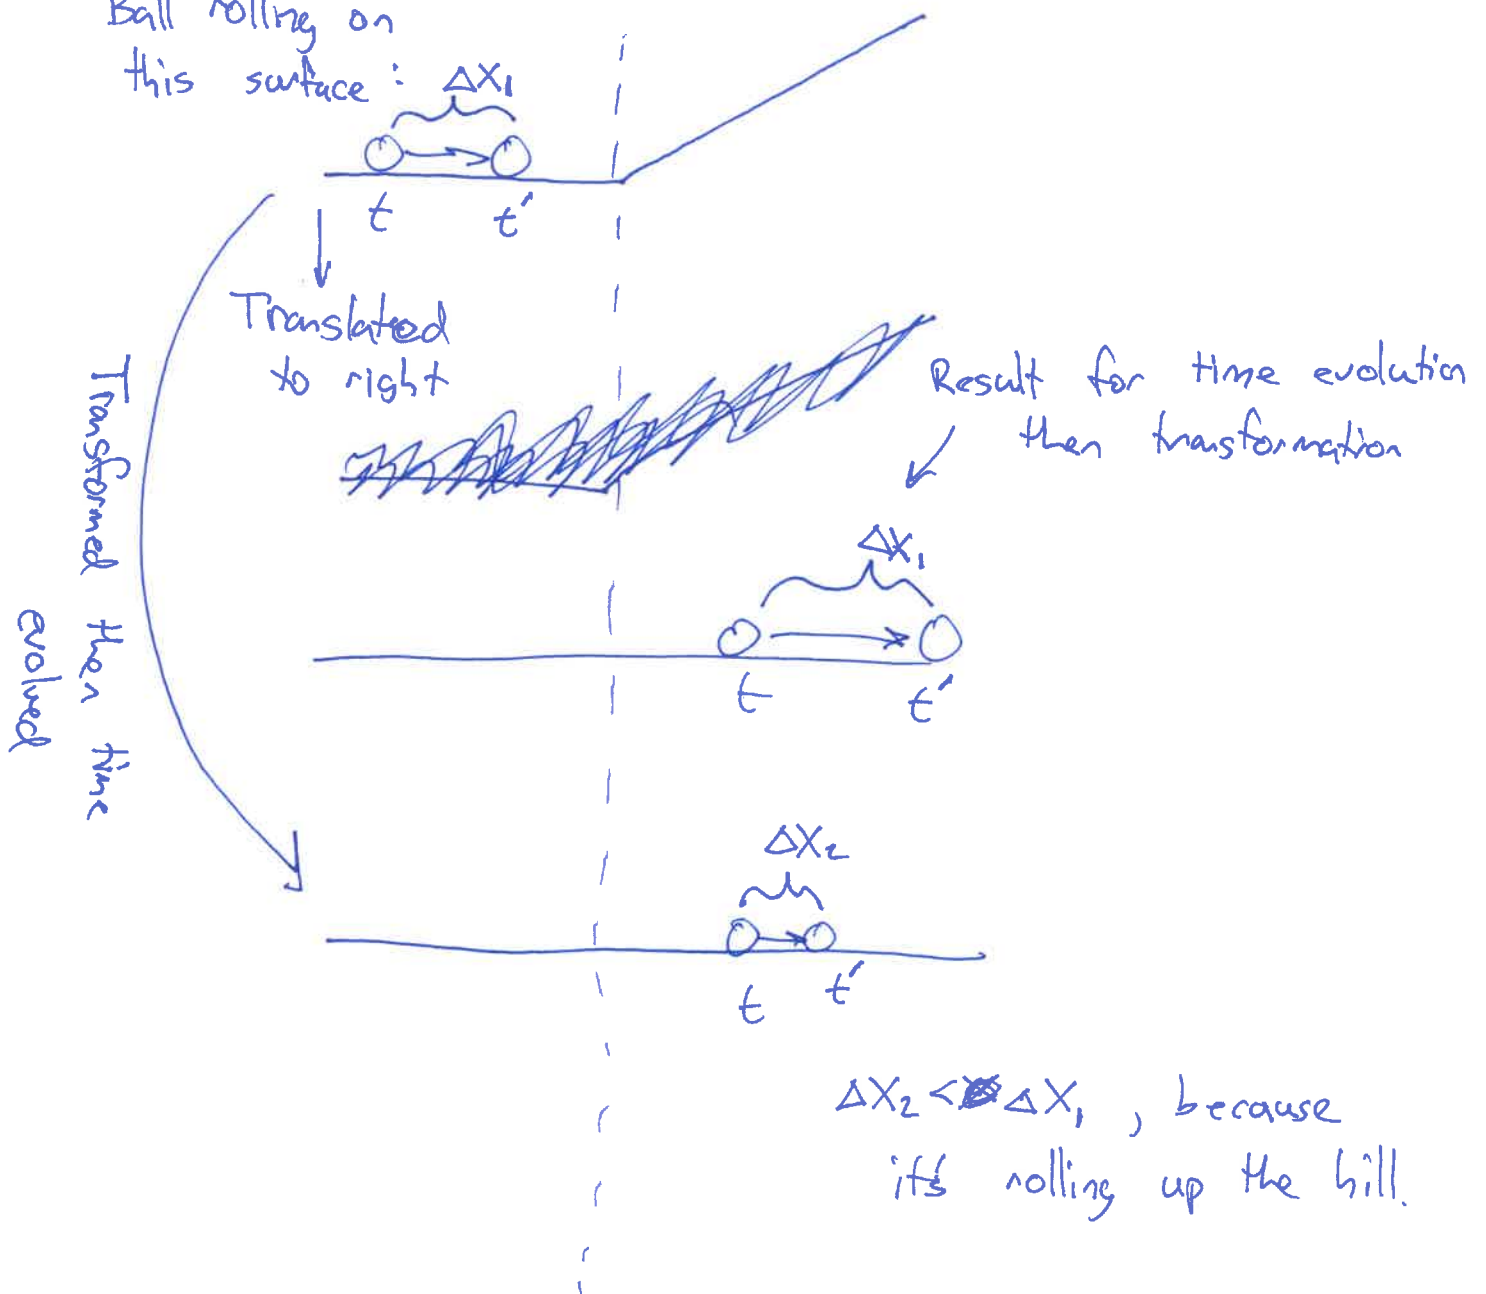 Ball rolling on
this surface:
ΔX₁
t t′
Translated
to right
Transformed then time
evolved
Result for time evolution
then transformation
ΔX₁
t t′
ΔX₂
t t′
ΔX₂ < ΔX₁, because
it's rolling up the hill.